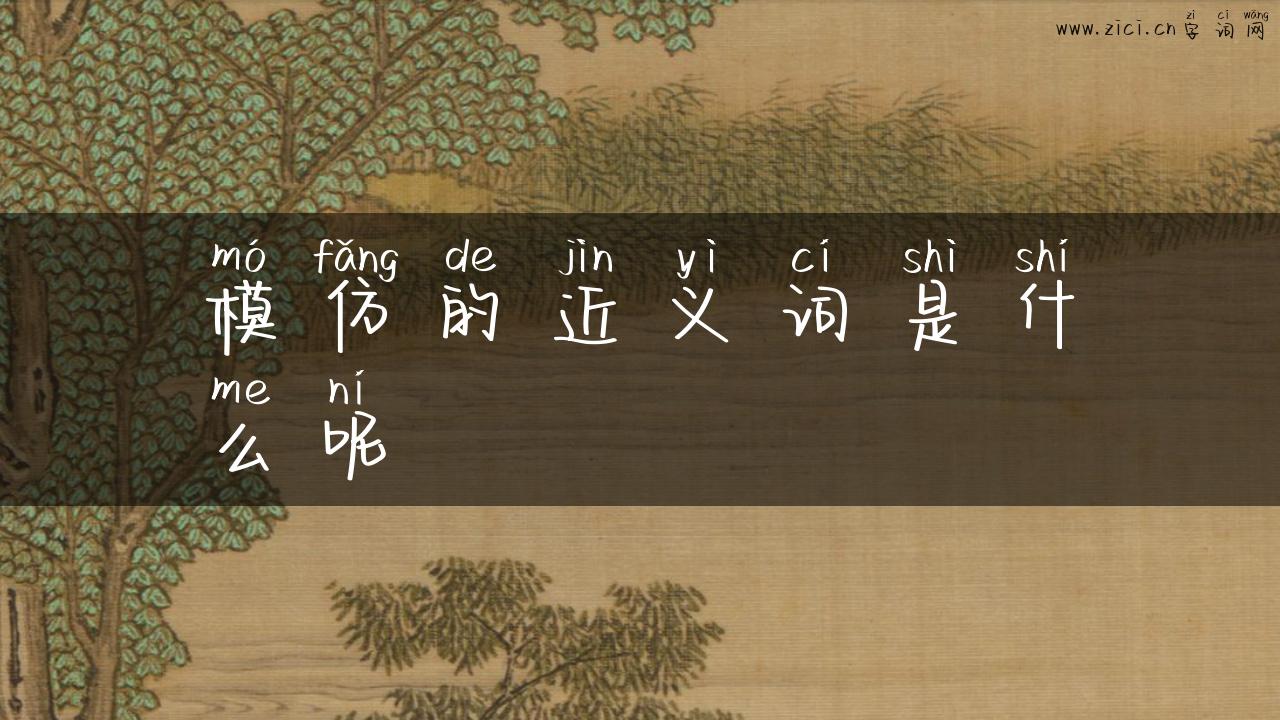 zì cí wǎng
www.zici.cn 字词网
mó fǎng de jìn yì cí shì shí
模仿的近义词是什
me ní
么呢